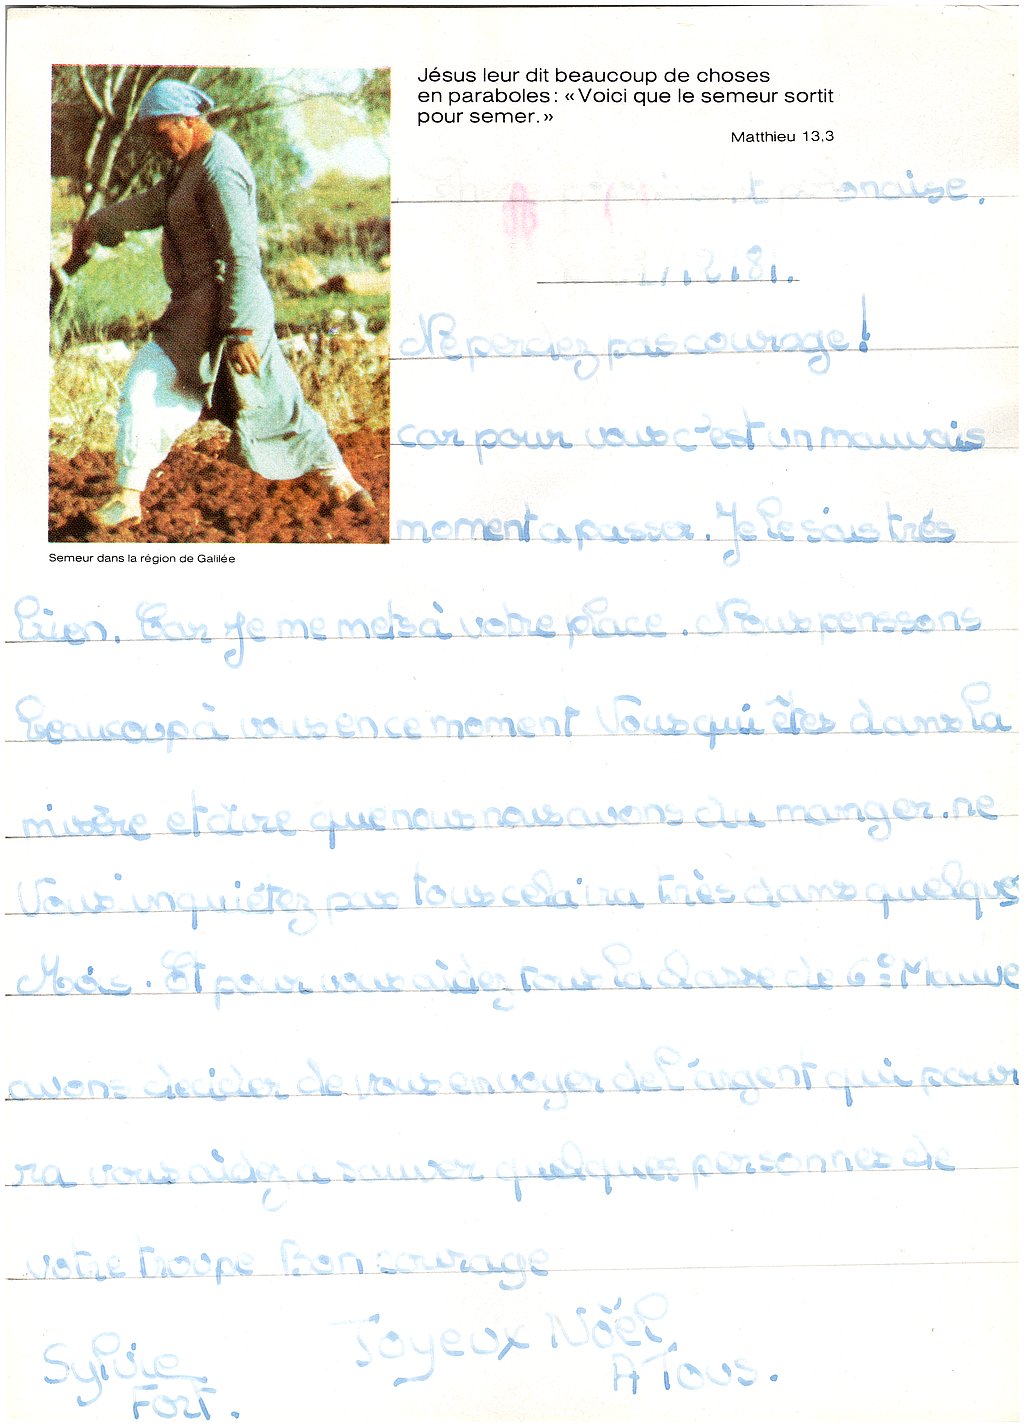 Jésus leur dit beaucoup de choses
en paraboles : «Voici que le semeur sortit
pour semer.»
Matthieu 13,3
Semeur dans la région de Galilée
Ne perdez pas courage !
car pour vous c'est un mauvais
moment a passer. Je le sais très
bien. Car je me mets à votre place. Nous penssons
beaucoup à vous en ce moment Vous qui êtes dans la
misère et dire que nous nous avons du manger. ne
Vous inquiétez pas tous cela ira très dans quelques
Mois. Et pour vous aidez tous la classe de 6e Mauve
avons decider de vous envoyer de l'argent qui pour
ra vous aidez a sauver quelques personnes de
votre troupe Bon courage
Joyeux Noël
A Tous.
Sylvie
Fort.